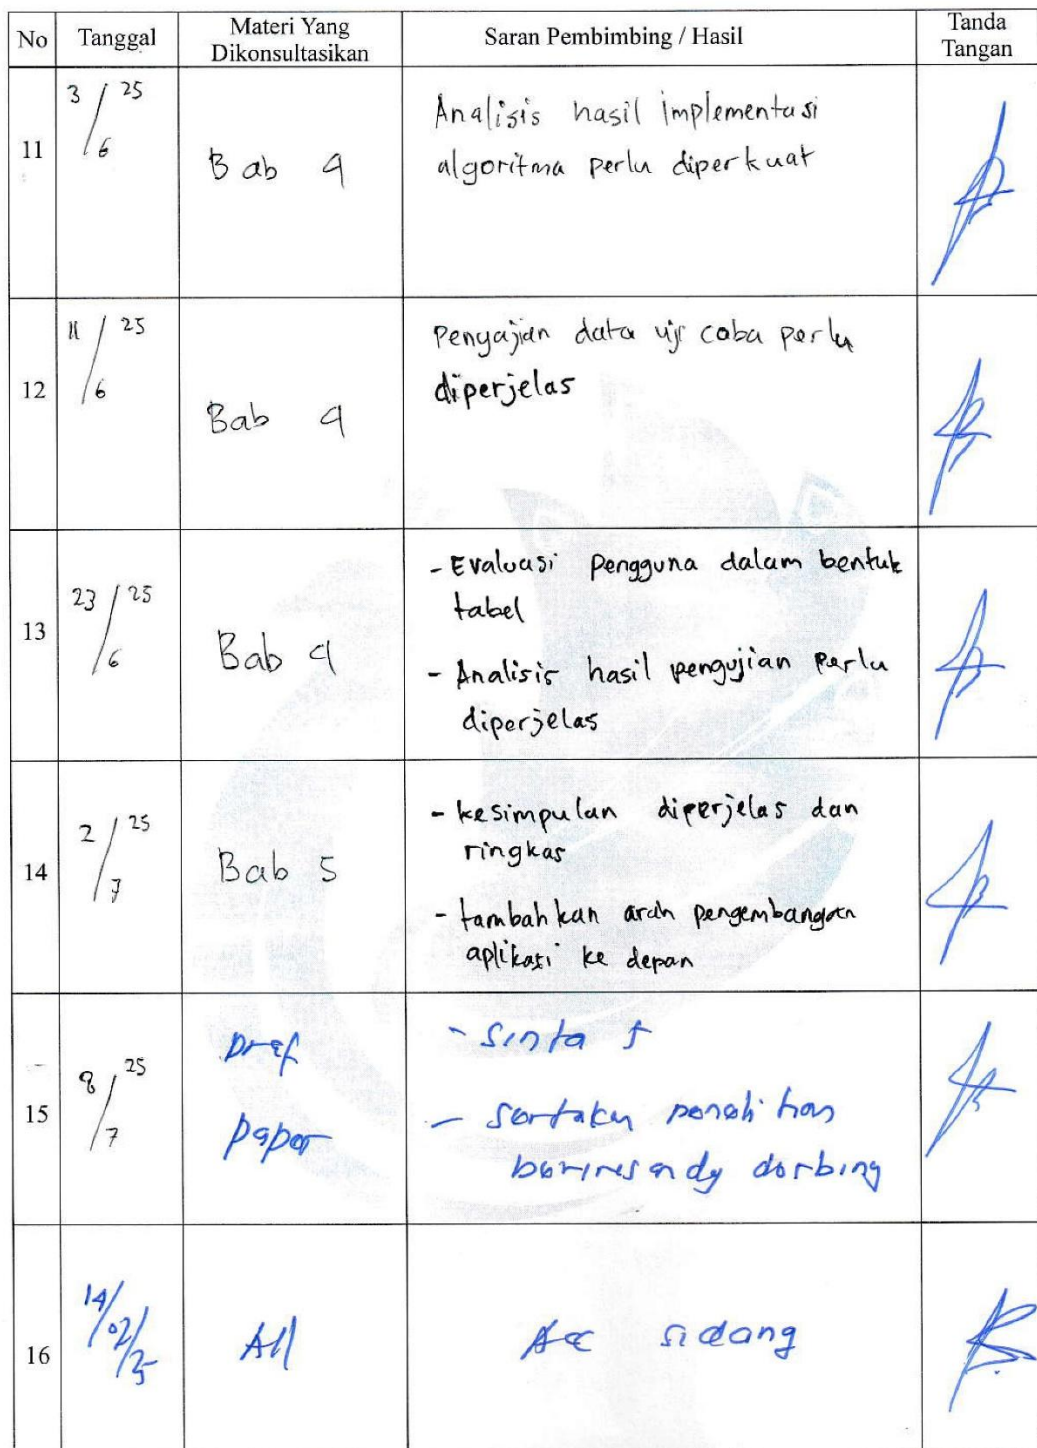 No Tanggal Materi Yang Dikonsultasikan Saran Pembimbing / Hasil Tanda Tangan
11 3/6 25 Bab 4 Analisis hasil implementasi
algoritma perlu diperkuat
12 11/6 25 Bab 4 Penyajian data uji coba perlu
diperjelas
13 23/6 25 Bab 4 - Evaluasi pengguna dalam bentuk
tabel
- Analisis hasil pengujian perlu
diperjelas
14 2/7 25 Bab 5 - kesimpulan diperjelas dan
ringkas
- tambahkan arah pengembangan
aplikasi ke depan
15 8/7 25 Draf - Sinta 5
paper - sertakan penelitian
dosbing
16 14/02/25 All Acc sidang